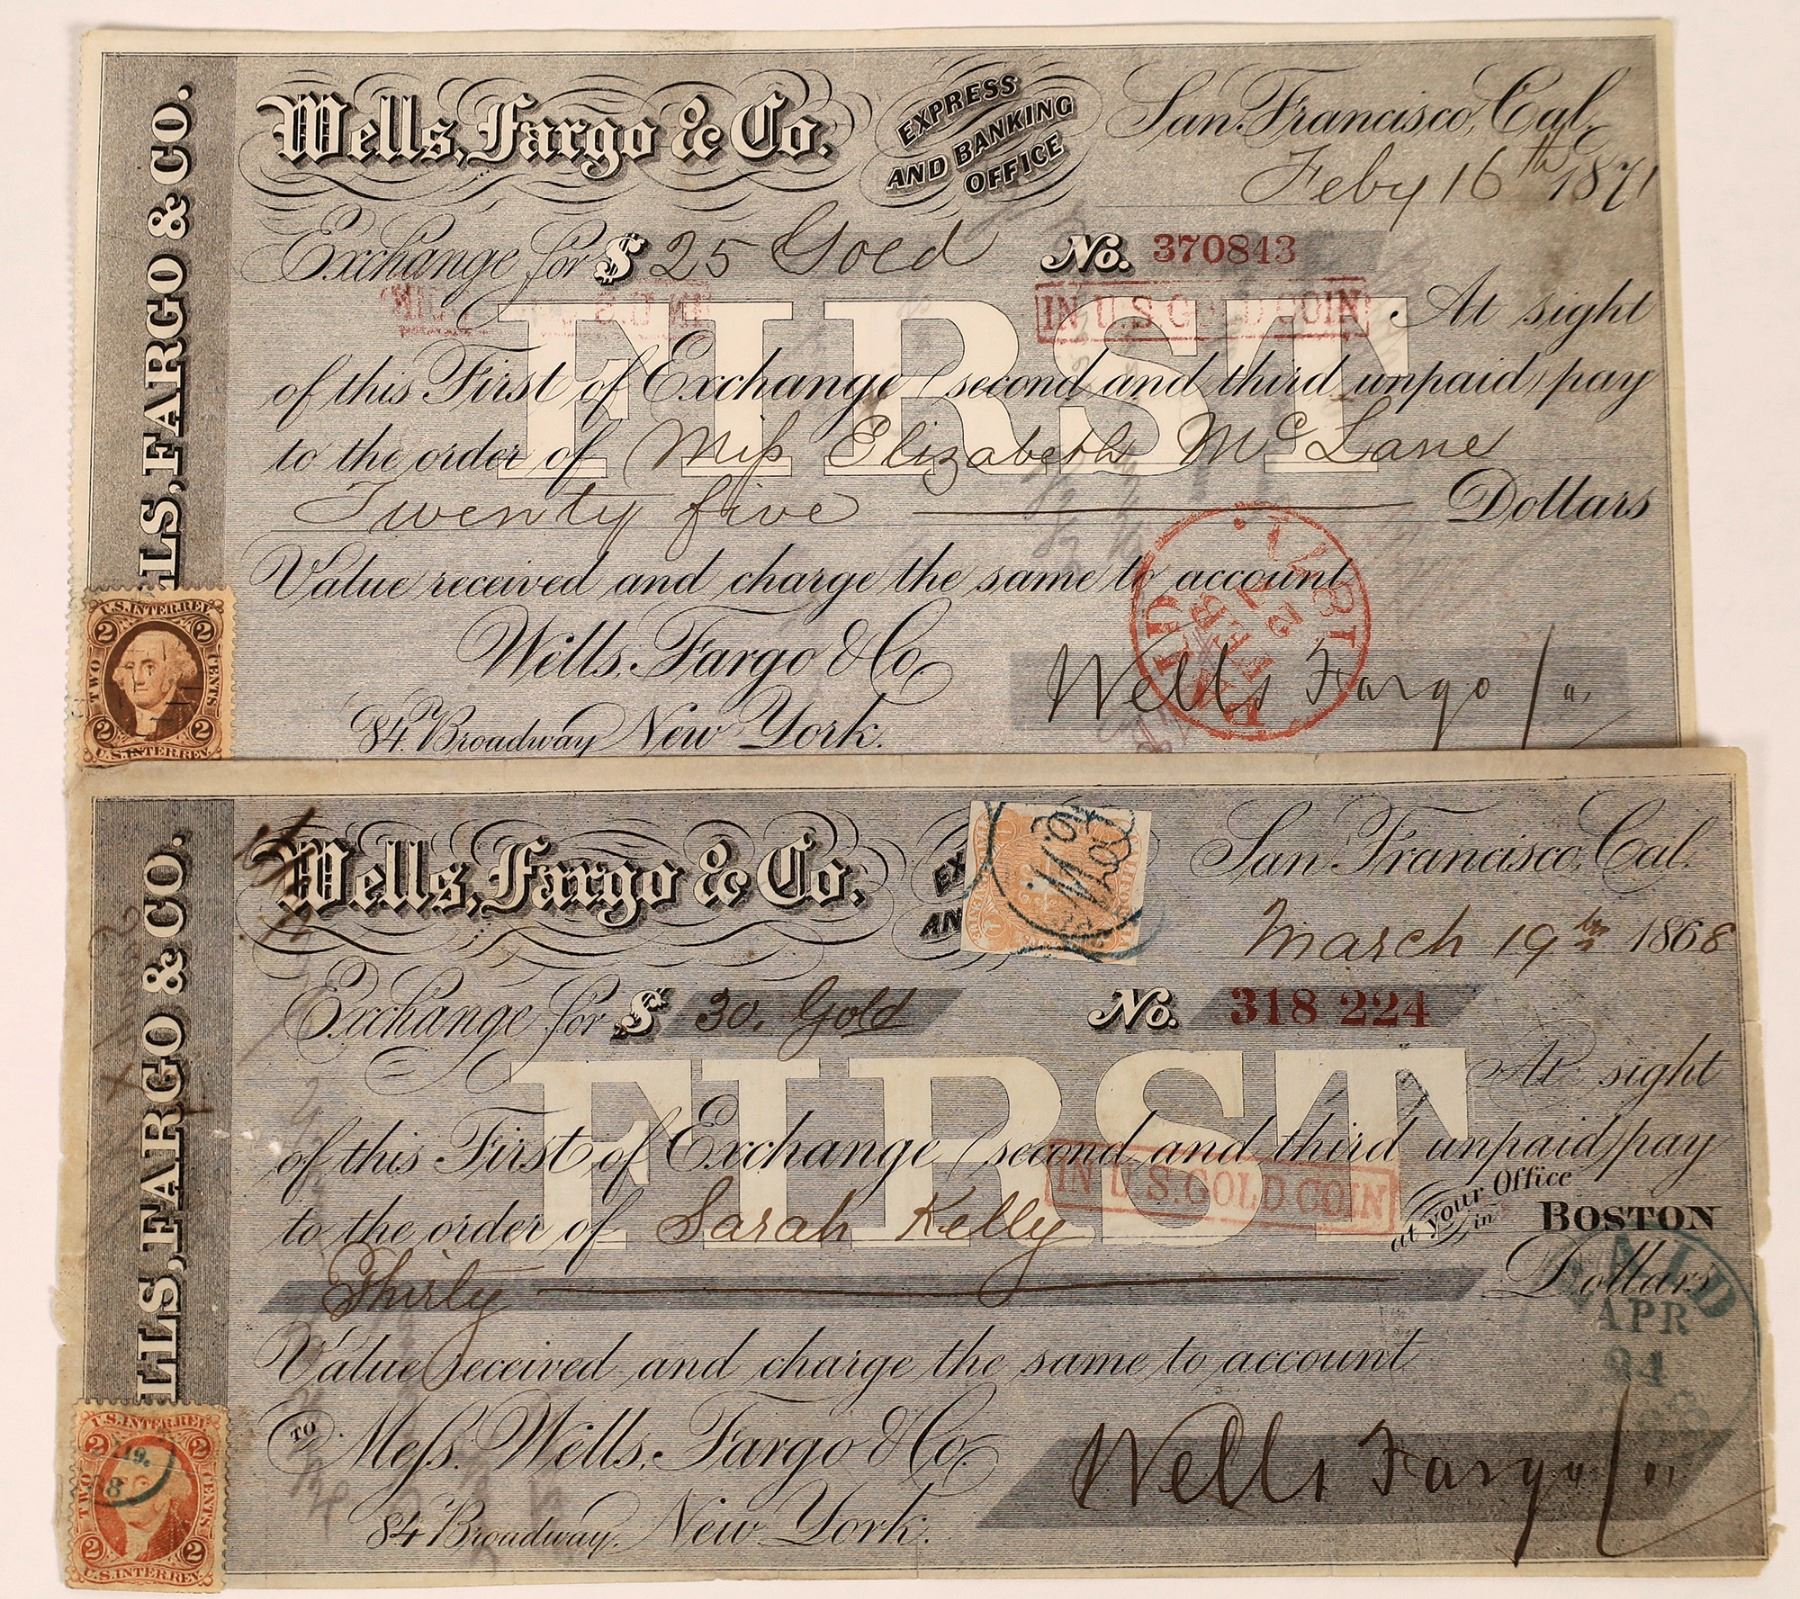 LLS, FARGO & CO.
Wells, Fargo & Co.
EXPRESS
AND BANKING
OFFICE
San Francisco, Cal.
Feby 16th 1871
Exchange for $ 25 Gold No. 370843
IN U.S. GOLD COIN
FIRST
At sight
of this First of Exchange (second and third unpaid) pay
to the order of Miss Elizabeth McLane
Twenty five Dollars
Value received and charge the same to account
Wells, Fargo & Co.
84 Broadway New York.
Wells Fargo
PAID
FEB
1871
U.S. INTER. REV.
2 2
TWO CENTS
2 2
U.S. INTER. REV.
LLS, FARGO & CO.
Wells, Fargo & Co.
EX
AN
San Francisco, Cal.
March 19th 1868
Exchange for $ 30. Gold No. 318 224
FIRST
At sight
of this First of Exchange (second and third unpaid) pay
IN U.S. GOLD COIN
at your Office
in BOSTON
to the order of Sarah Kelly
Thirty Dollars
PAID
APR
24
Value received and charge the same to account
TO Mess. Wells, Fargo & Co.
84 Broadway, New York.
Wells Fargo
U.S. INTER. REV.
2 2
TWO CENTS
2 2
U.S. INTER. REV.